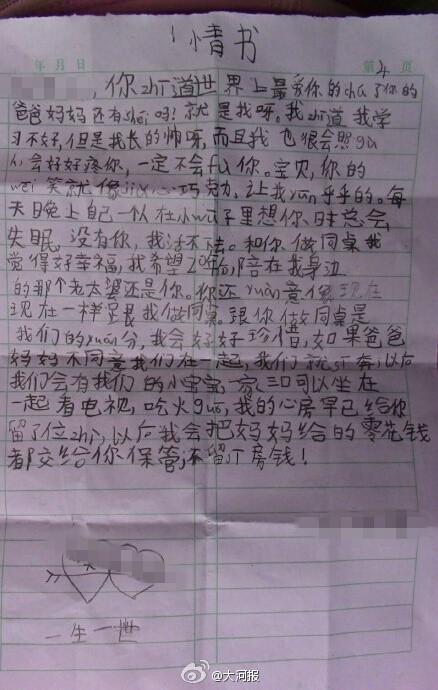 情书
年 月 日 第 4 页
，你zhī道世界上最爱你的chú了你的
爸爸妈妈还有shéi吗！就是我呀。我zhī道我学
习不好，但是我长的帅呀，而且我也很会照gù
人，会好好疼你，一定不会fù你。宝贝，你的
wēi笑就像 心巧克力，让我yūn乎乎的。每
天晚上自己一人在小wū子里想你，时总会
失眠，没有你，我活不 。和你做同桌我
觉得好幸福，我希望20年后，陪在我身边
的那个老太婆还是你。你还yuàn意像现在
现在一样跟我做同桌。跟你做同桌是
我们的yuán分，我会好好珍惜，如果爸爸
妈妈不同意我们在一起，我们就 奔，以后
我们会有我们的小宝宝，一家三口可以坐在
一起看电视，吃火guō，我的心房早已给你
留了位zhì，以后我会把妈妈给的零花钱
都交给你保管，不留 房钱！
一生一世
@大河报